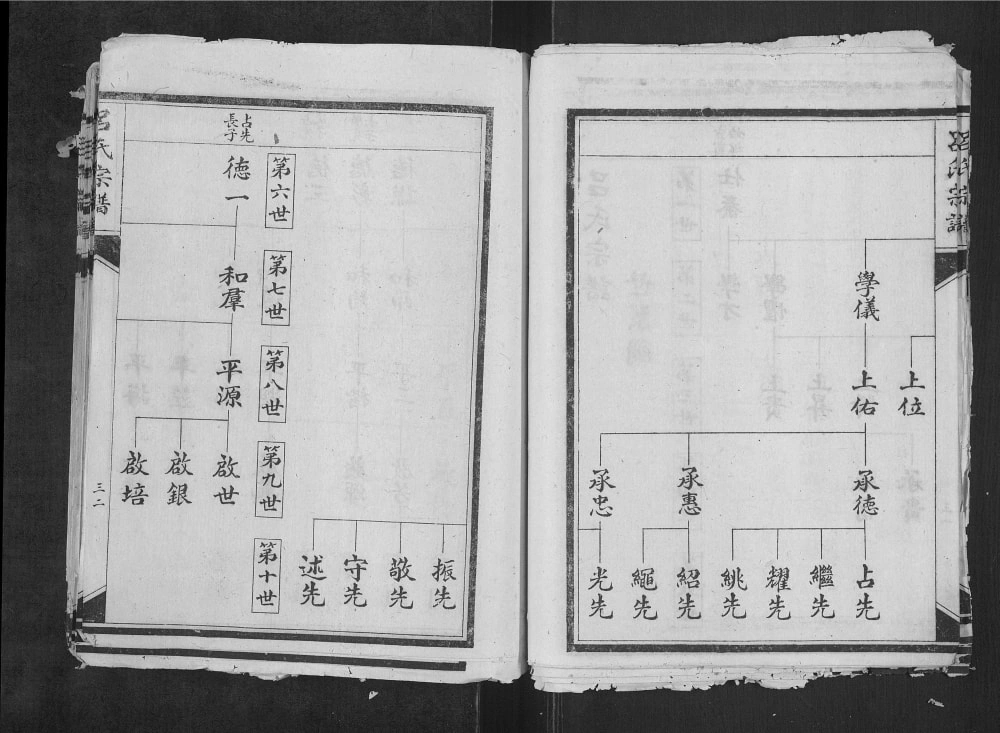 呂氏宗譜
上位
學儀
上佑
承德
占先
繼先
耀先
絩先
承惠
紹先
繩先
承忠
光先
振先
敬先
守先
述先
第六世
第七世
第八世
第九世
第十世
占先長子
德一
和羣
平源
啟世
啟銀
啟培
呂氏宗譜
三二